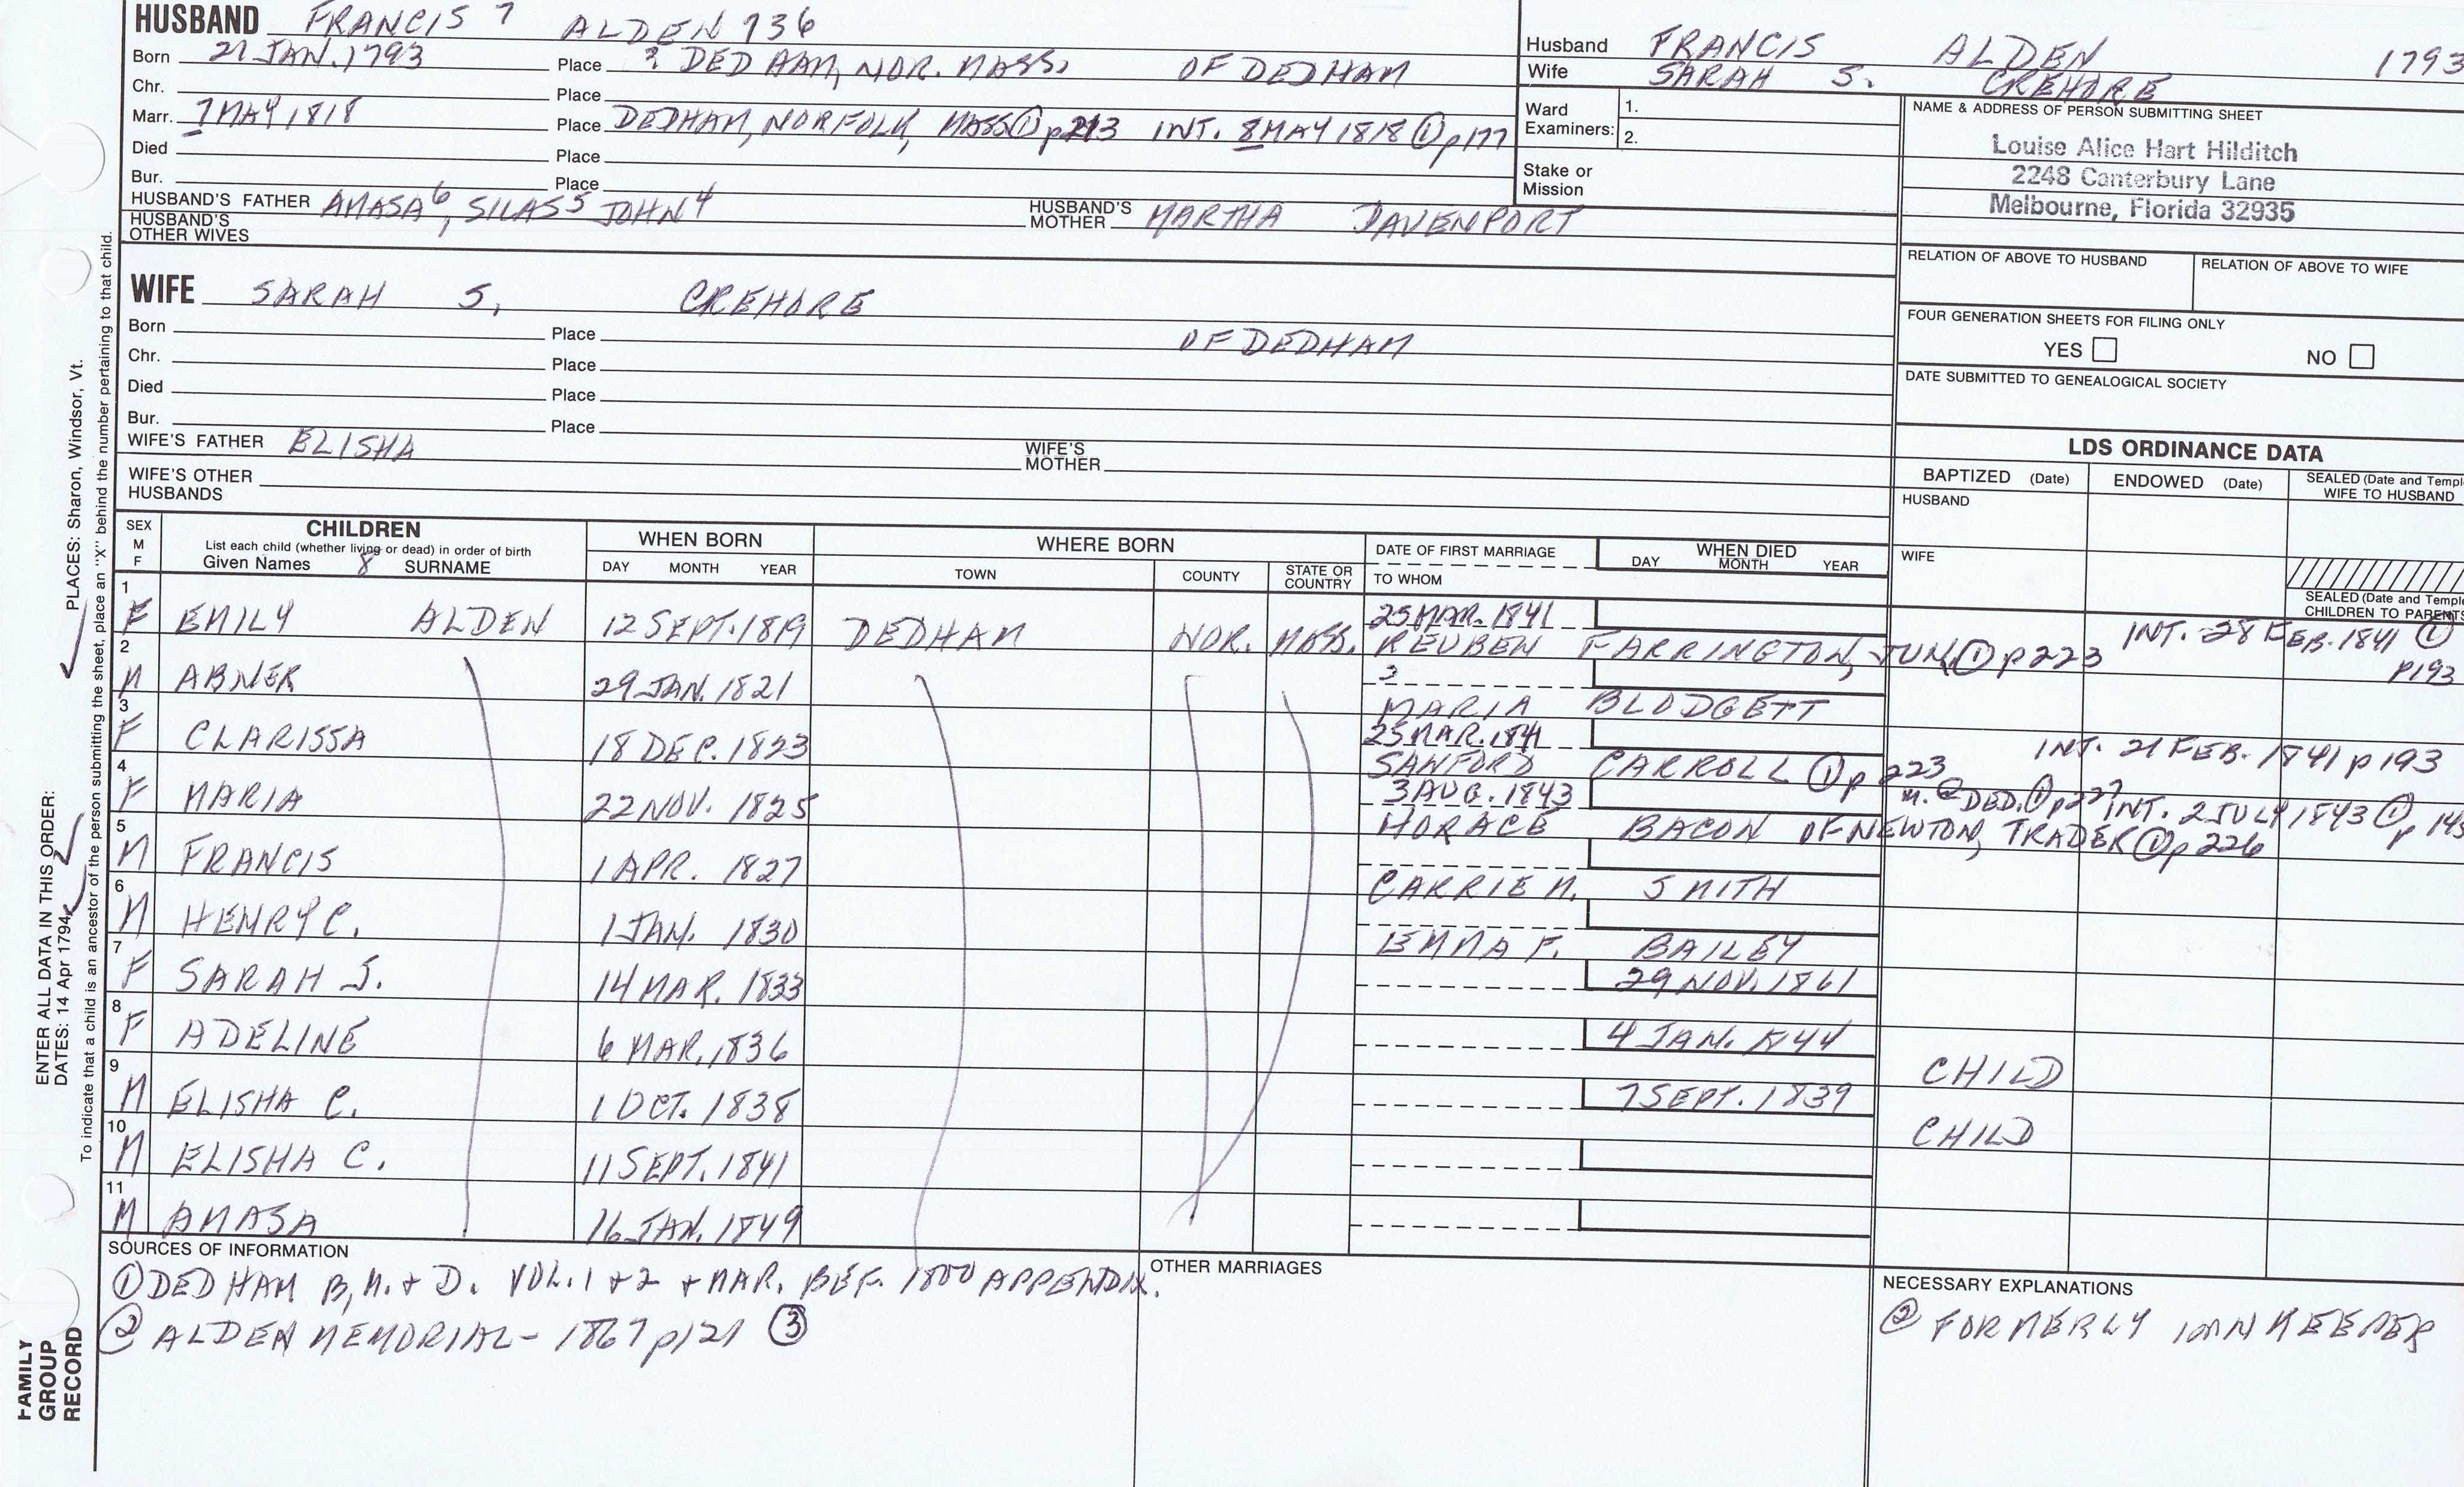 HUSBAND FRANCIS 7 ALDEN 736
Born 21 JAN. 1793 Place ? DEDHAM, NOR. MASS. OF DEDHAM
Chr. Place
Marr. 7 MAY 1818 Place DEDHAM, NORFOLK, MASS ① p213 INT. 8 MAY 1818 ① p177
Died Place
Bur. Place
HUSBAND'S FATHER AMASA6, SILAS5 JOHN4 HUSBAND'S MOTHER MARTHA DAVENPORT
HUSBAND'S OTHER WIVES
Husband FRANCIS ALDEN 1793
Wife SARAH S. CREHORE
Ward Examiners: 1.
2.
Stake or Mission
NAME & ADDRESS OF PERSON SUBMITTING SHEET
Louise Alice Hart Hilditch
2248 Canterbury Lane
Melbourne, Florida 32935
RELATION OF ABOVE TO HUSBAND RELATION OF ABOVE TO WIFE
FOUR GENERATION SHEETS FOR FILING ONLY
YES NO
DATE SUBMITTED TO GENEALOGICAL SOCIETY
WIFE SARAH S. CREHORE
Born Place OF DEDHAM
Chr. Place
Died Place
Bur. Place
WIFE'S FATHER ELISHA WIFE'S MOTHER
WIFE'S OTHER HUSBANDS
LDS ORDINANCE DATA
BAPTIZED (Date) ENDOWED (Date) SEALED (Date and Templ
WIFE TO HUSBAND
HUSBAND
WIFE
SEALED (Date and Temple
CHILDREN TO PARENTS
SEX M F
CHILDREN
List each child (whether living or dead) in order of birth
Given Names 8 SURNAME
WHEN BORN
DAY MONTH YEAR
WHERE BORN
TOWN COUNTY STATE OR COUNTRY
DATE OF FIRST MARRIAGE
TO WHOM
WHEN DIED
DAY MONTH YEAR
1 F EMILY ALDEN 12 SEPT. 1819 DEDHAM NOR. MASS. 25 MAR. 1841
REUBEN FARRINGTON, JUN. ① p223 INT. 28 FEB. 1841 ① p193
2 M ABNER 29 JAN. 1821
MARIA BLODGETT
3 F CLARISSA 18 DEC. 1823 25 MAR. 1841
SANFORD CARROLL ① p223 INT. 21 FEB. 1841 p193
4 F MARIA 22 NOV. 1825 3 AUG. 1843 m. @ DED. ① p227 INT. 2 JULY 1843 ①
HORACE BACON OF NEWTON, TRADER ① p226
5 M FRANCIS 1 APR. 1827
CARRIE M. SMITH
6 M HENRY C. 1 JAN. 1830
EMMA F. BAILEY
7 F SARAH S. 14 MAR. 1833 29 NOV. 1861
8 F ADELINE 6 MAR. 1836 4 JAN. 1844 CHILD
9 M ELISHA C. 1 OCT. 1838 7 SEPT. 1839 CHILD
10 M ELISHA C. 11 SEPT. 1841
11 M AMASA 16 JAN. 1849
SOURCES OF INFORMATION
① DEDHAM B, M. + D. VOL. 1 + 2 + MAR. BEF. 1800 APPENDIX.
② ALDEN MEMORIAL - 1867 p121 ③
OTHER MARRIAGES
NECESSARY EXPLANATIONS
② FORMERLY INN KEEPER
PLACES: Sharon, Windsor, Vt.
ENTER ALL DATA IN THIS ORDER:
DATES: 14 Apr 1794
To indicate that a child is an ancestor of the person submitting the sheet, place an "X" behind the number pertaining to that child.
FAMILY
GROUP
RECORD